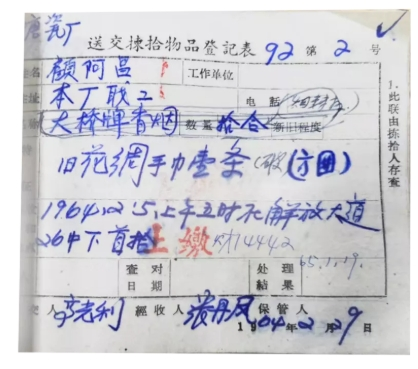 瓷厂
送交拣拾物品登記表 92 第 2 号
名 顧阿昌 工作单位
本厂职工 电話
大桥牌香烟 数量 拾合 新旧程度
旧花绸手巾壹条(破)(方圆)
1964.12.5.上午五时在解放大道
26中下首拾 上繳 14442
查对日期 处理結果 65.1.19.
人 李老利 經收人 張丹凤 保管人
1964年2月29日
1.此联由拣拾人存查